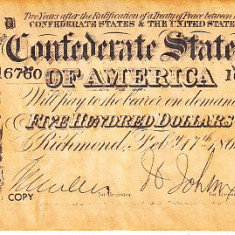 Two Years after the Ratification of a Treaty of Peace between
CONFEDERATE STATES & THE UNITED STATE
Confederate State
16760
OF AMERICA
1
Will pay to the bearer on deman
FIVE HUNDRED DOLLARS
Richmond, Feb. 17th, 186
for Register
for
COPY